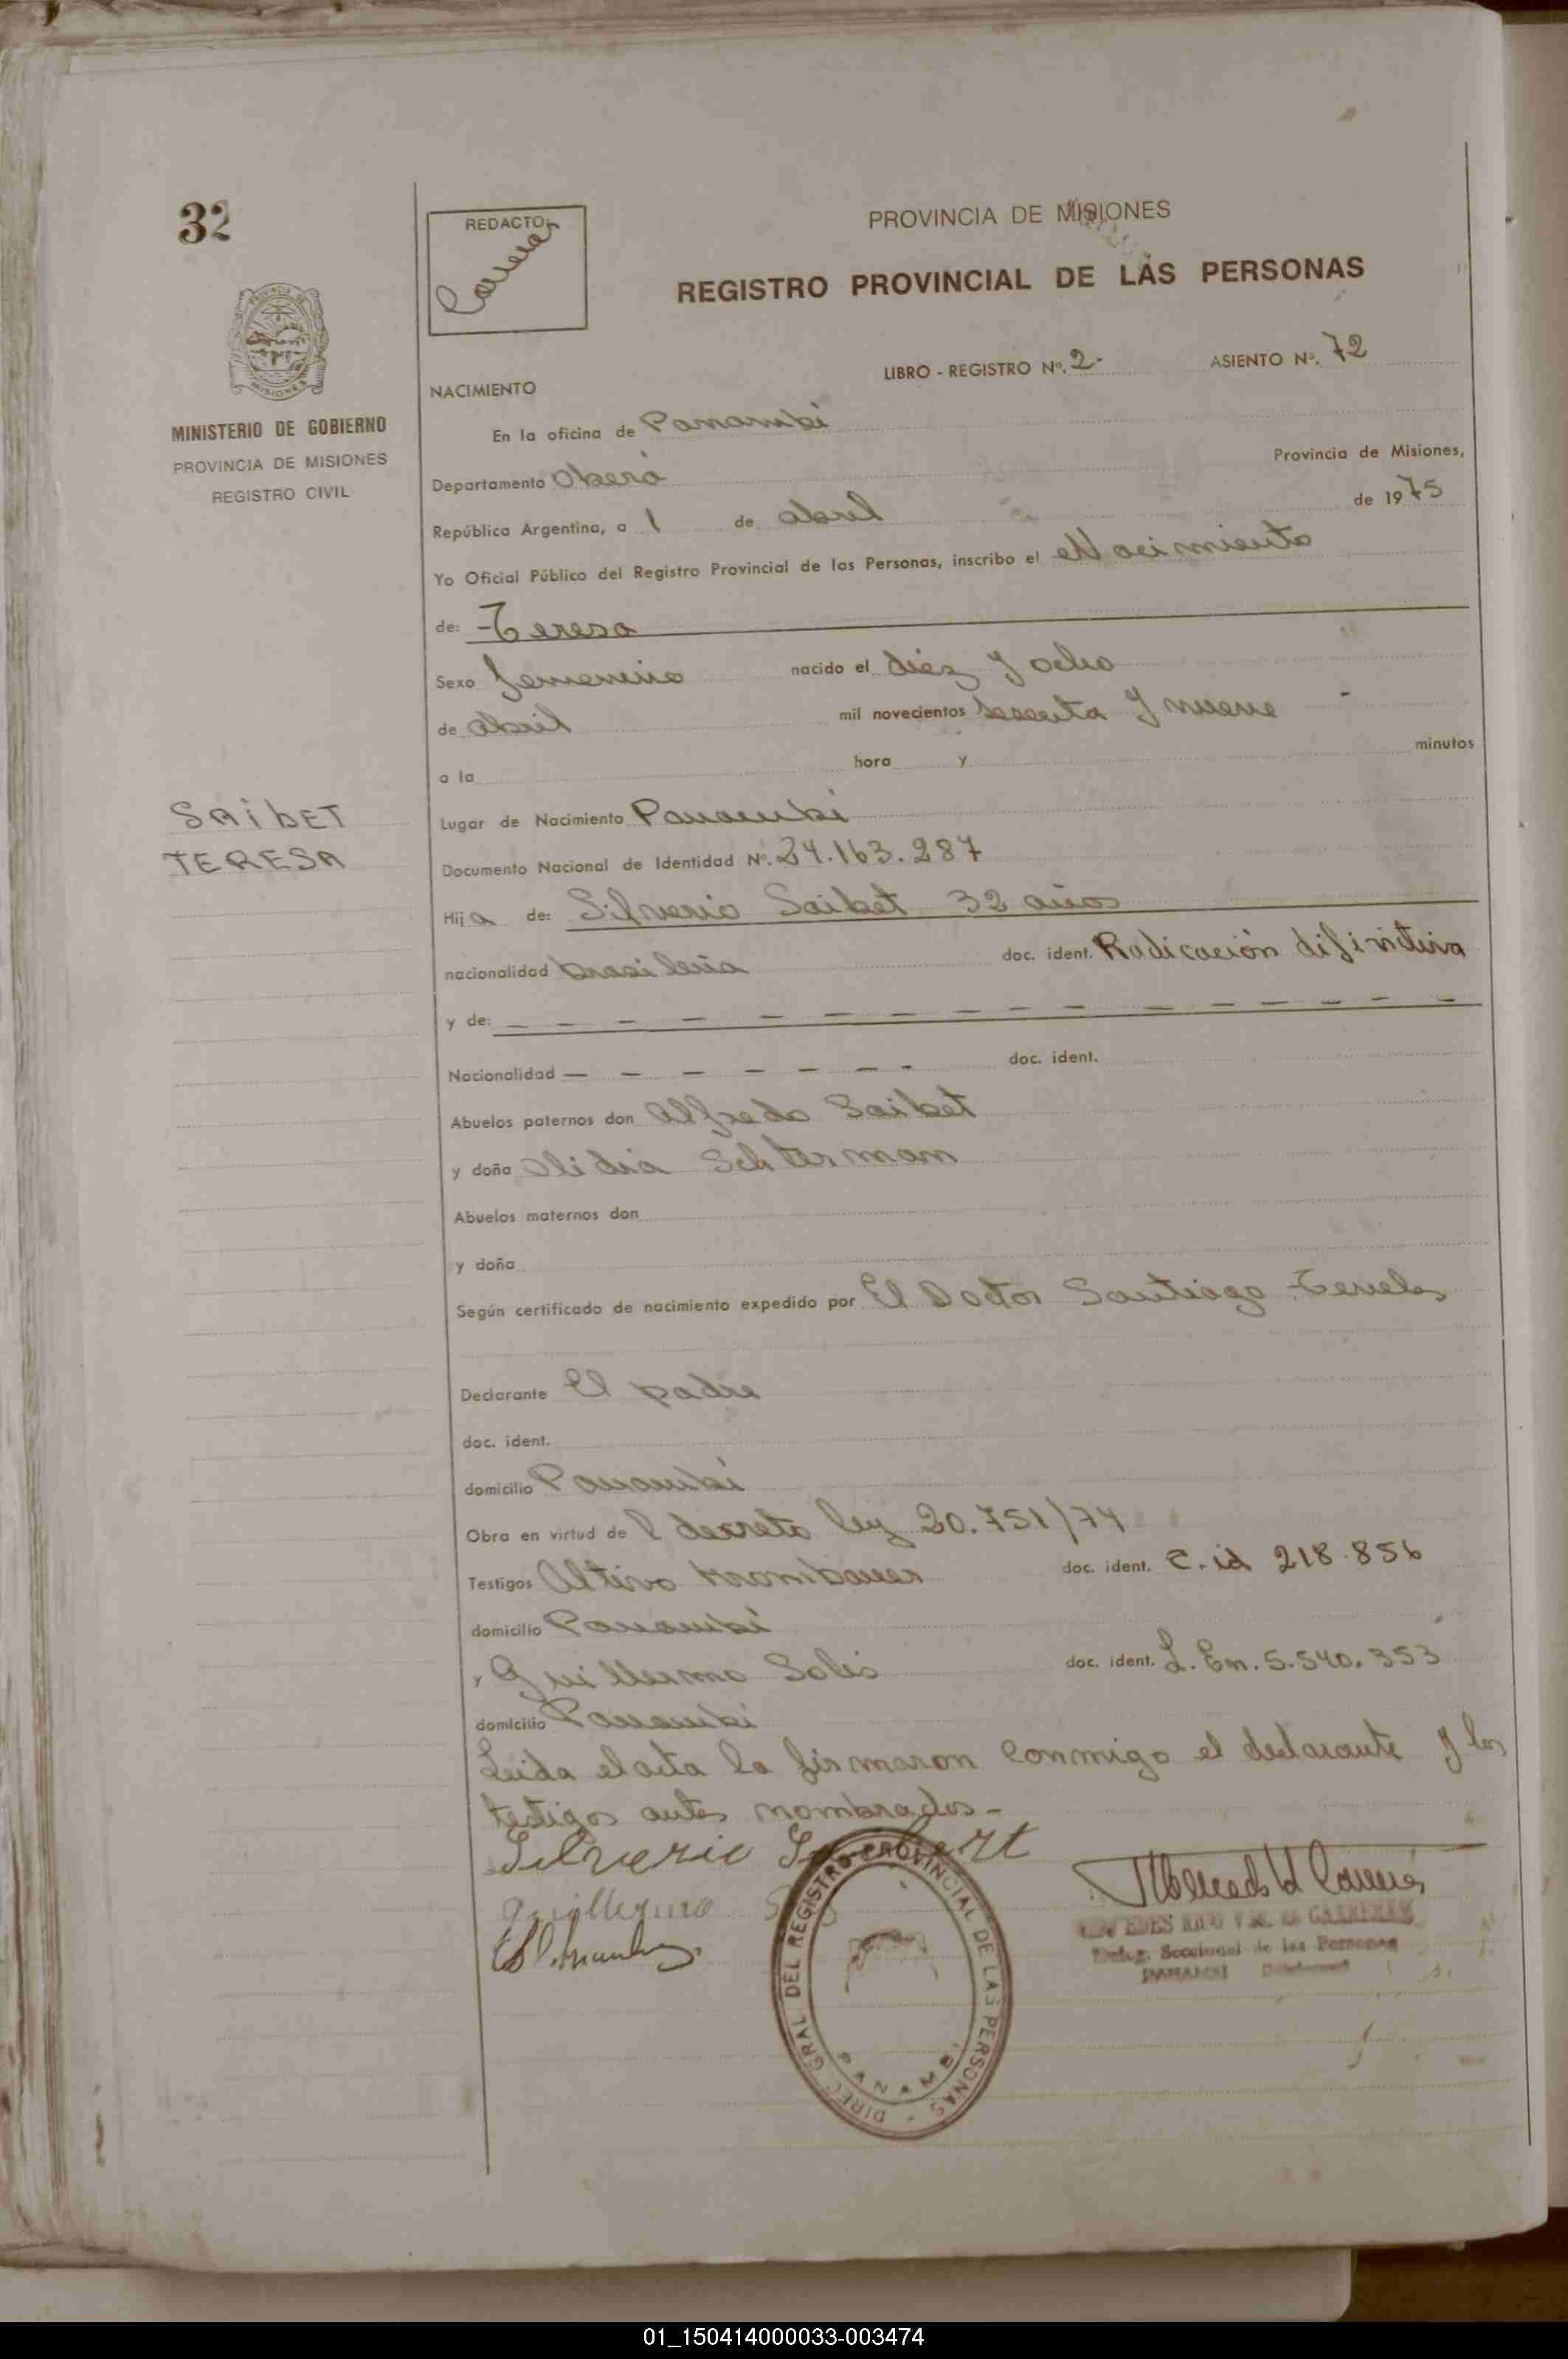 32
REDACTO:
Carreras
PROVINCIA DE MISIONES
REGISTRO PROVINCIAL DE LAS PERSONAS
PROVINCIA DE MISIONES
MINISTERIO DE GOBIERNO
PROVINCIA DE MISIONES
REGISTRO CIVIL
LIBRO - REGISTRO Nº. 2- ASIENTO Nº. 72
NACIMIENTO
En la oficina de Panambi
Departamento Oberá Provincia de Misiones,
República Argentina, a 1 de abril de 1975
Yo Oficial Público del Registro Provincial de las Personas, inscribo el Nacimiento
de: Teresa
Sexo femenino nacido el diez y ocho
de abril mil novecientos sesenta y nueve -
a la hora y minutos
SAibET
TERESA
Lugar de Nacimiento Panambi
Documento Nacional de Identidad Nº. 24.163.287
Hija de: Silverio Saibet 32 años
nacionalidad brasileña doc. ident. Radicación difinitiva
y de: — — — — — — — — — — — — — —
Nacionalidad — — — — — — -  doc. ident.
Abuelos paternos don Alfredo Saibet
y doña Olidia Schterman
Abuelos maternos don
y doña
Según certificado de nacimiento expedido por El Doctor Santiago
Declarante El padre
doc. ident.
domicilio Panambi
Obra en virtud de l decreto ley 20.751/74
Testigos Altivo Krombauer doc. ident. C. id 218.856
domicilio Panambi
y Guillermo Solis doc. ident. L. En. 5.540.353
domicilio Panambi
Leida el acta la firmaron conmigo el declarante y los
testigos antes nombrados-
Silverio
Guillermo
DIREC. GRAL. DEL REGISTRO PROVINCIAL DE LAS PERSONAS - PANAMBI
Deleg. Seccional de las Personas
PANAMBI
01_150414000033-003474